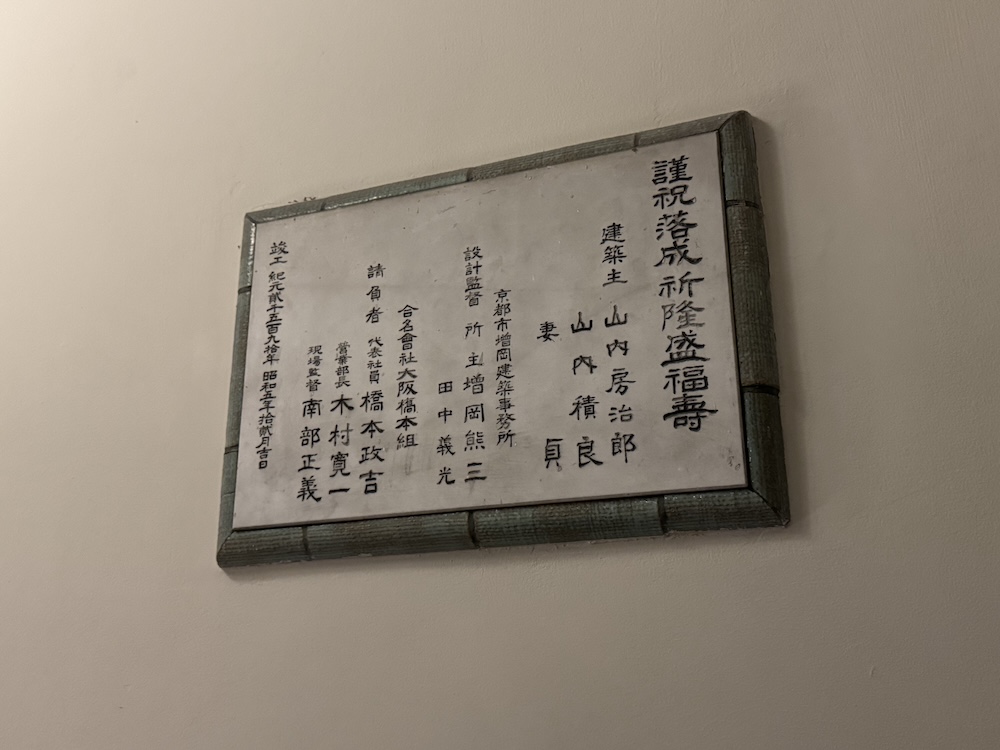 謹祝落成祈隆盛福壽
建築主 山内房治郎
山内積良
妻 貞
京都市増岡建築事務所
設計監督 所主増岡熊三
田中義光
合名會社大阪橋本組
請負者 代表社員 橋本政吉
営業部長 木村寛一
現場監督 南部正義
竣工 紀元貳千五百九拾年 昭和五年拾貳月吉日